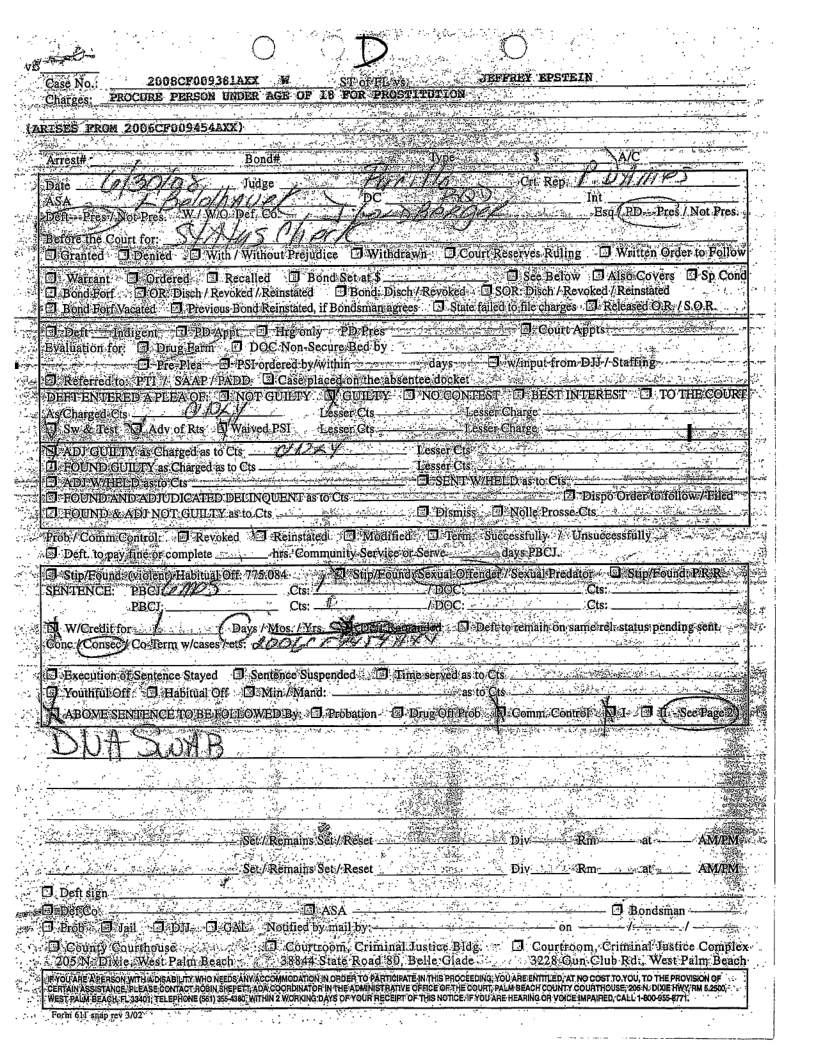 D
Case No.: 2008CF009381AXX W ST of FL vs. JEFFREY EPSTEIN
Charges: PROCURE PERSON UNDER AGE OF 18 FOR PROSTITUTION
(ARISES FROM 2006CF009454AXX)
Arrest# Bond# Type $ A/C
Date 6/30/08 Judge Crt. Rep.
ASA DC Int
Deft - Pres / Not Pres. W / W/O Def. Co. Goldberger Esq / PD - Pres / Not Pres.
Before the Court for: Status Check
Granted Denied With / Without Prejudice Withdrawn Court Reserves Ruling Written Order to Follow
Warrant Ordered Recalled Bond Set at $ See Below Also Covers Sp Cond
Bond Forf OR: Disch / Revoked / Reinstated Bond: Disch / Revoked SOR: Disch / Revoked / Reinstated
Bond Forf Vacated Previous Bond Reinstated, if Bondsman agrees State failed to file charges Released O.R. / S.O.R.
Deft Indigent PD Appt. Hrg only PD Pres Court Appts
Evaluation for: Drug Farm DOC Non-Secure Bed by
Pre-Plea PSI ordered by/within days w/input from DJJ / Staffing
Referred to: PTI / SAAP / PADD Case placed on the absentee docket
DEFT ENTERED A PLEA OF: NOT GUILTY GUILTY NO CONTEST BEST INTEREST TO THE COURT
As Charged Cts ONLY Lesser Cts Lesser Charge
Sw & Test Adv of Rts Waived PSI Lesser Cts Lesser Charge
ADJ GUILTY as Charged as to Cts ONLY Lesser Cts
FOUND GUILTY as Charged as to Cts Lesser Cts
ADJ W/HELD as to Cts SENT W/HELD as to Cts
FOUND AND ADJUDICATED DELINQUENT as to Cts Dispo Order to follow / Filed
FOUND & ADJ NOT GUILTY as to Cts Dismiss Nolle Prosse Cts
Prob / Comm Control: Revoked Reinstated Modified Term: Successfully / Unsuccessfully
Deft. to pay fine or complete hrs. Community Service or Serve days PBCJ.
Stip/Found: (violent) Habitual Off. 775.084 Stip/Found: Sexual Offender / Sexual Predator Stip/Found: P.R.R.
SENTENCE: PBCJ 6 MOS Cts: 1 / DOC: Cts:
PBCJ: Cts: / DOC: Cts:
W/Credit for 1 Days / Mos. / Yrs. Deft Remanded Deft to remain on same rel. status pending sent.
Conc / Consec / Co-Term w/cases / cts:
Execution of Sentence Stayed Sentence Suspended Time served as to Cts
Youthful Off Habitual Off Min / Mand: as to Cts
ABOVE SENTENCE TO BE FOLLOWED By: Probation Drug Off Prob Comm. Control I II - See Page 2
DNA SWAB
Set / Remains Set / Reset Div Rm at AM/PM
Set / Remains Set / Reset Div Rm at AM/PM
Deft sign
Def Co ASA Bondsman
Prob Jail DJJ GAL Notified by mail by: on / /
County Courthouse Courtroom, Criminal Justice Bldg. Courtroom, Criminal Justice Complex
205 N. Dixie, West Palm Beach 38844 State Road 80, Belle Glade 3228 Gun Club Rd., West Palm Beach
IF YOU ARE A PERSON WITH A DISABILITY WHO NEEDS ANY ACCOMMODATION IN ORDER TO PARTICIPATE IN THIS PROCEEDING, YOU ARE ENTITLED, AT NO COST TO YOU, TO THE PROVISION OF
CERTAIN ASSISTANCE. PLEASE CONTACT ROBIN SHEPETT, ADA COORDINATOR IN THE ADMINISTRATIVE OFFICE OF THE COURT, PALM BEACH COUNTY COURTHOUSE, 205 N. DIXIE HWY, RM 5.2500,
WEST PALM BEACH, FL 33401; TELEPHONE (561) 355-4380, WITHIN 2 WORKING DAYS OF YOUR RECEIPT OF THIS NOTICE. IF YOU ARE HEARING OR VOICE IMPAIRED, CALL 1-800-955-8771.
Form 611 snap rev 3/02